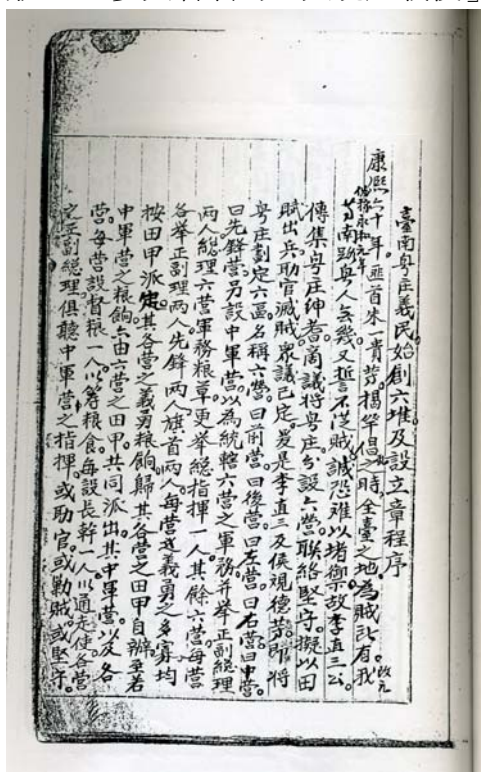 臺南粵庄義民。始創六堆及設立章程序
康熙六十年。匪首朱一貴等。揭竿倡亂之時。全臺之地。為賊訨有。我
改元
偽稱永和元年
等南路粵人無幾。又誓不從賊。誠恐難以堵禦。故李直三公。
傳集粵庄紳耆。商議將粵庄分設六營。聯絡堅守。擬以田
賦出兵。助官滅賊。眾議已定。爰是李直三及侯覌德等。即將
粵庄劃定六區。名稱六營。曰前營。曰後營。曰左營。曰右營。曰中營。
曰先鋒營。另設中軍營。以為統轄六營之軍務。并舉正副總理
兩人。總理六營軍務糧草。更舉總指揮一人。其餘六營。每營
各舉正副理兩人。先鋒兩人。旗首兩人。每營之義勇之多寡。均
按田甲派定。其各營之義勇粮餉。歸其各營之田甲自辦。至若
中軍營之粮餉。亦由六營之田甲。共同派出。其中軍營。以及各
營。每營設督粮一人。以籌粮食。每設長幹一人。以通走使。各營
之正副總理。俱聽中軍營之指揮。或助官。或勦賊。或堅守。